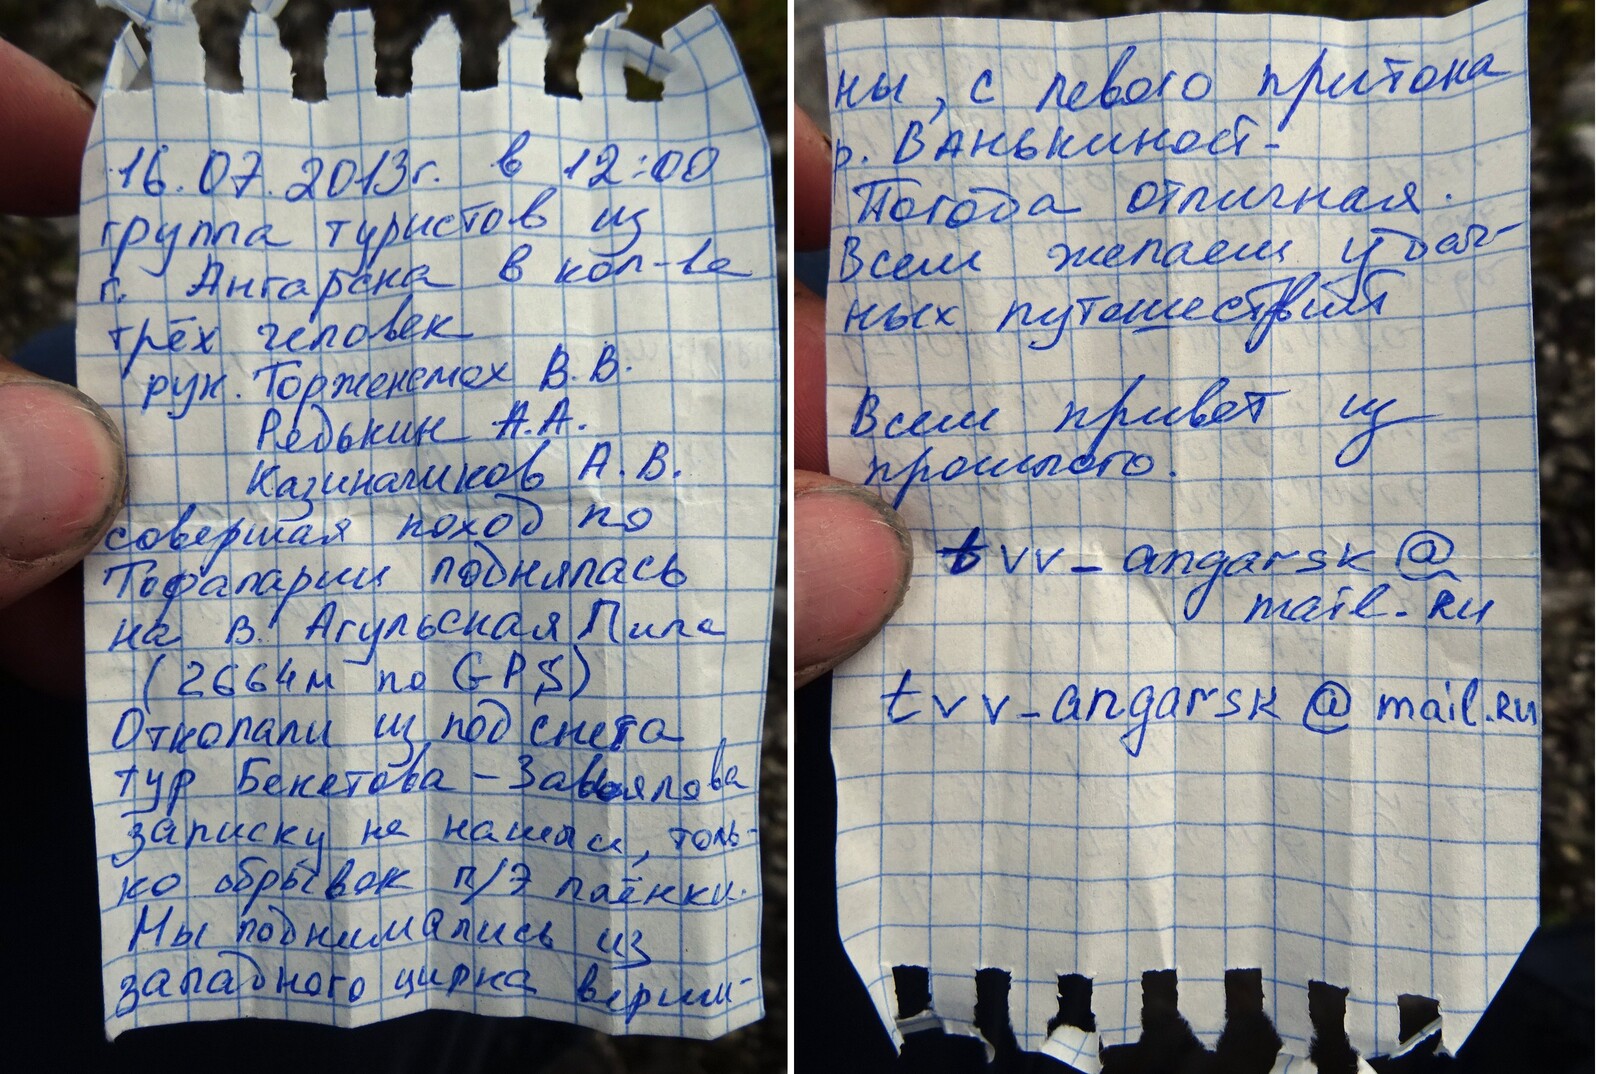 16.07.2013г. в 12:00
группа туристов из
г. Ангарска в кол-ве
трёх человек
рук. Торжемсмех В.В.
Редькин А.А.
Казиналиков А.В.
совершая поход по
Тофаларии поднялась
на в. Агульская Пила
(2664м по GPS)
Откопали из под снега
тур Бекетова – Завьялова
записку не нашли, толь-
ко обрывок п/э плёнки.
Мы поднимались из
западного цирка верши-
ны, с левого притока
р. Ванькиност-
Погода отличная.
Всем желаем удач-
ных путешествий
Всем привет из
прошлого.
tvv_angarsk@
mail.ru
tvv_angarsk@mail.ru